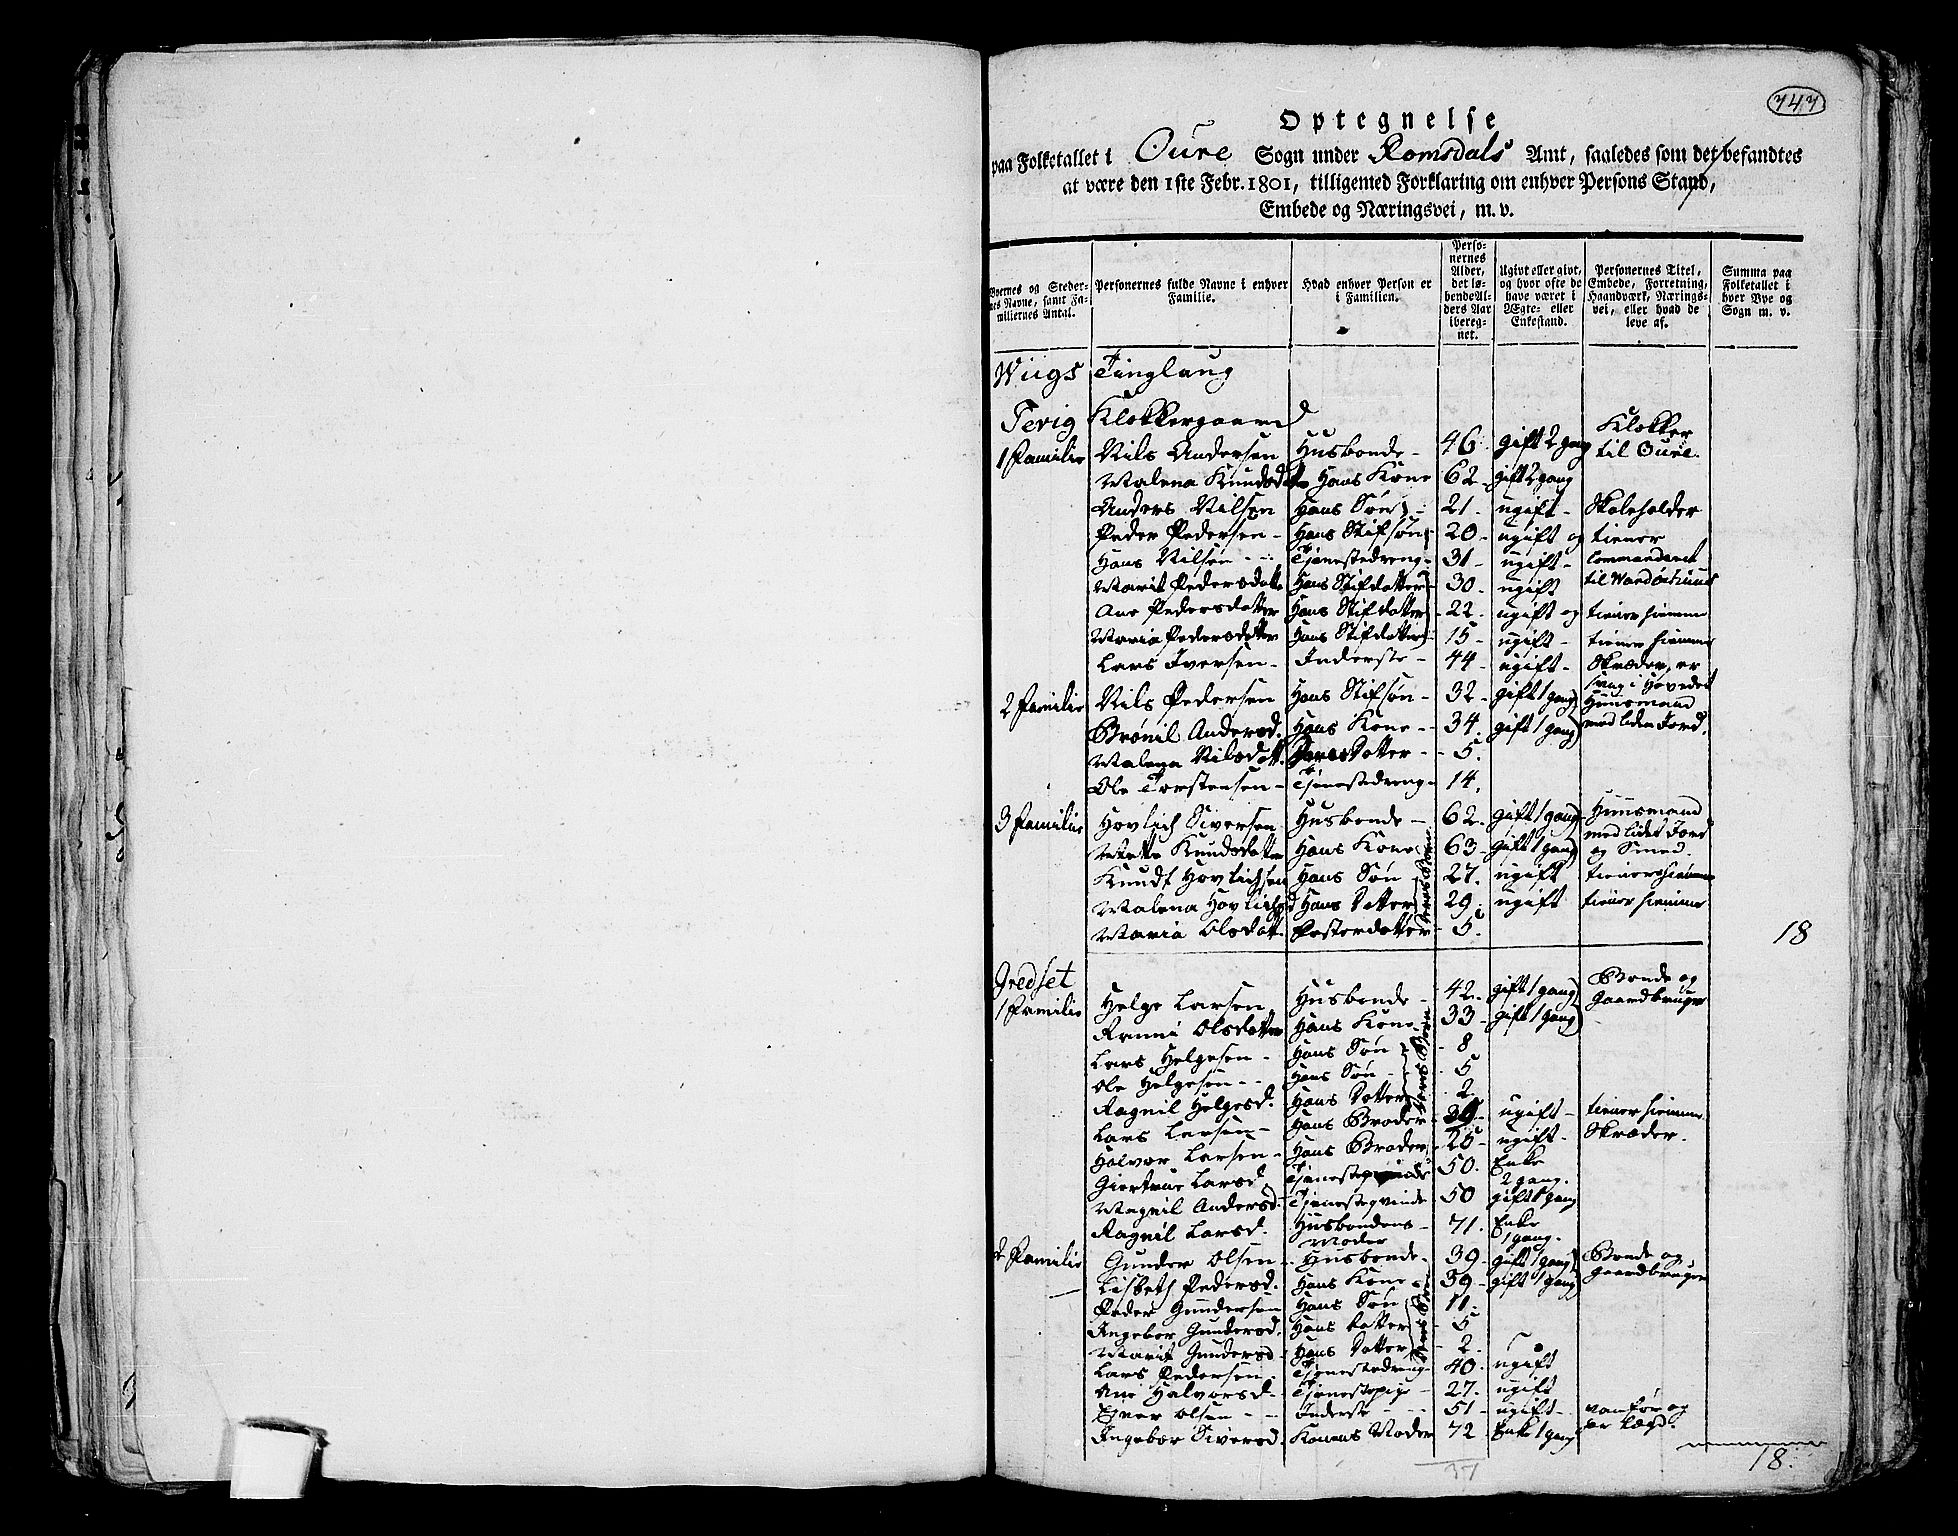 747
Optegnelse
paa Folketallet i Oure Sogn under Romsdals Amt, saaledes som det befandtes
at være den 1ste Febr. 1801, tilligemed Forklaring om enhver Persons Stand,
Embede og Næringsvei, m. v.
Byernes og Stedernes Navne, samt Familiernes Antal.
Personernes fulde Navne i enhver Familie.
Hvad enhver Person er i Familien.
Personernes Alder, det løbende Alders Aar iberegnet.
Ugivt eller givt, og hvor ofte de have været i Ægte- eller Enkestand.
Personernes Titel, Embede, Forretning, Haandværk, Næringsvei, eller hvad de leve af.
Summa paa Folketallet i hver Bye og Sogn m. v.
Wiigs Tinglaug
Tevig Klokkergaard
1 Familie Nils Andersen Husbonde 46 gift 2 gang Klokker til Oure.
Malena Knudsdatter Hans Kone 62 gift 2 gang
Anders Nilsen Hans Søn 21 ugift Skoleholder
Peder Pedersen Hans Stifsøn 20 ugift og tiener
Hans Nilsen Tjenestedreng 31 ugift Commandant
Marit Pedersdatter Hans Stifdatter 30 ugift til
Ane Pedersdatter Hans Stifdatter 22 ugift og tiener hiemme
Maria Pedersdatter Hans Stifdatter 15 ugift tiener hiemme
Lars Iversen Inderste 44 ugift Skræder, er svag i Hovedet
2 Familie Nils Pedersen Hans Stifsøn 32 gift 1 gang Huusmand
Brønil Andersd. Hans Kone 34 gift 1 gang med liden Jord.
Malena Nilsdatt. Datter 5
Ole Torstensen Tjenestedreng 14
3 Familie Hovlich Siversen Husbonde 62 gift 1 gang Huusmand
Mette Knudsdatter Hans Kone 63 gift 1 gang med lidet Jord og Smed.
Knudt Hovlichsen Hans Søn 27 ugift tiener hiemme
Malena Hovlichsd Hans Datter 29 ugift tiener hiemme
Maria Olsdatt. Fosterdatter 5
deres Børn
18
Jredset
1 Familie Helge Larsen Husbonde 42 gift 1 gang Bonde og Gaardbruger
Olsdatter Hans Kone 33 gift 1 gang
Lars Helgesen Hans Søn 8
Ole Helgesen Hans Søn 5
Ragnil Helgesd. Hans Datter 2
deres Børn
Lars Larsen Hans Broder ugift tiener hiemme
Halvor Larsen Hans Broder 25 ugift Skræder.
Giertrue Larsd. 50 Enke 2 gang.
Magnil Andersd. Tjenesteqvinde 50 gift 1 gang
Ragnil Larsd. Husbondens Moder 71 Enke 1 gang.
2 Familie Gunder Olsen Husbonde 39 gift 1 gang Bonde og
Lisbeth Pedersd. Hans Kone 39 gift 1 gang Gaardbruger
Peder Gundersen Hans Søn 11
Ingebor Gundersd. Hans Datter 5
Marit Gundersd Hans Datter 2
deres Børn
Lars Pedersen Tjenestedreng 40 ugift
Ane Halvorsd Tjenestepige 27 ugift
Iver Olsen Inderste 51 ugift vanfør og
Ingebor Siversd. Konens Moder 72 Enke 1 gang er Lægd.
18.
37